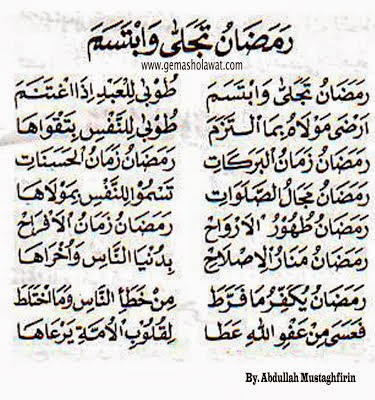 رَمَضَانُ تَجَلَّى وَابْتَسَمَ
www.gemasholawat.com
رَمَضَانُ تَجَلَّى وَابْتَسَمَ طُوْبَى لِلْعَبْدِ اِذَا اغْتَنَمَ
اَرْضَى مَوْلَاهُ بِمَا الْتَزَمَ طُوْبَى لِلنَّفْسِ بِتَقْوَاهَا
رَمَضَانُ زَمَانُ الْبَرَكَاتِ رَمَضَانُ زَمَانُ الْحَسَنَاتِ
رَمَضَانُ مَجَالُ الصَّلَوَاتِ تَسْمُو النَّفْسُ بِمَوْلَاهَا
رَمَضَانُ طُهُوْرُ الْاَرْوَاحِ رَمَضَانُ زَمَانُ الْاَفْرَاحِ
رَمَضَانُ مَنَارُ الْاِصْلَاحِ بِدُنْيَا النَّاسِ وَاُخْرَاهَا
رَمَضَانُ يُكَفِّرُ مَا فَرَطَ مِنْ خَطَأِ النَّاسِ وَمَا اخْتَلَطَ
فَعَسَى مِنْ عَفْوِ اللهِ عَطَا لِقُلُوْبِ الْاُمَّةِ يَرْعَاهَا
By. Abdullah Mustaghfirin